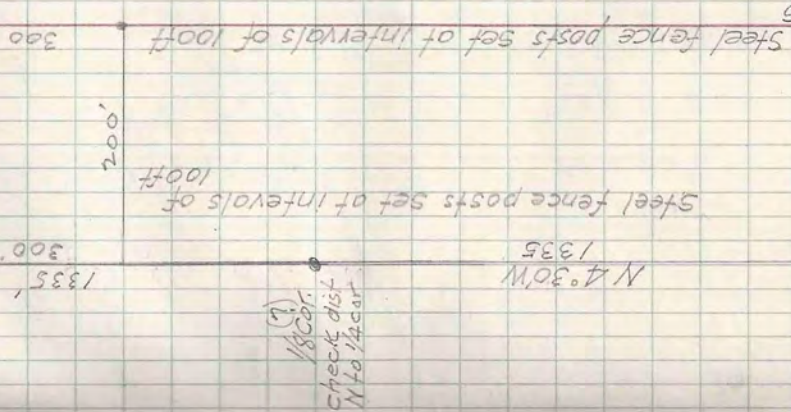 N 4°30'W
1335
1335'
300'
(?)
1/8 Cor.
check dist
N to 1/4 cor
Steel fence posts set at intervals of
100ft
200'
Steel fence posts set at intervals of 100ft
300